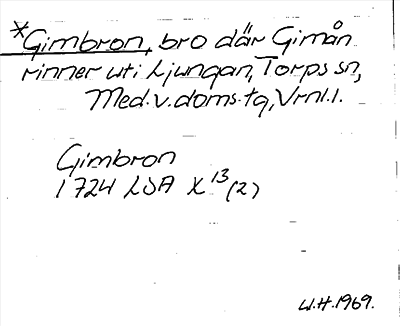 *Gimbron, bro där Gimån
rinner uti Ljungan, Torps sn,
Med.v.doms.tg, Vrnl.l.
Gimbron
1724 LSA X 13 (2)
W.H. 1969.